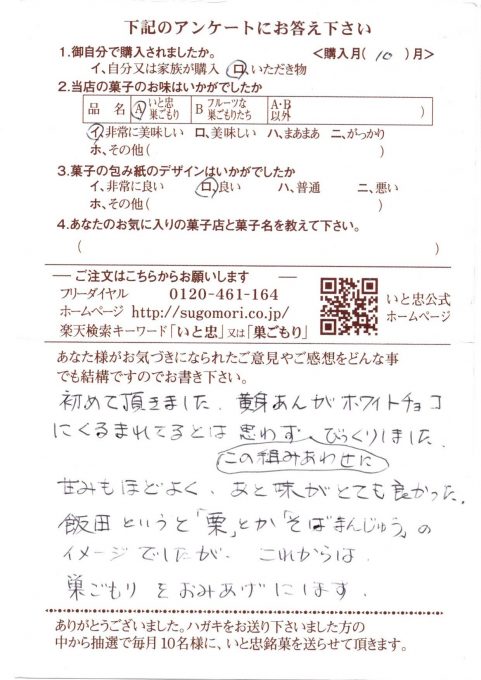 下記のアンケートにお答え下さい
1.御自分で購入されましたか。 <購入月( 10 )月>
イ、自分又は家族が購入 ロ、いただき物
2.当店の菓子のお味はいかがでしたか
品 名 A いと忠巣ごもり B フルーツな巣ごもりたち A・B以外 )
イ、非常に美味しい ロ、美味しい ハ、まあまあ ニ、がっかり
ホ、その他( )
3.菓子の包み紙のデザインはいかがでしたか
イ、非常に良い ロ、良い ハ、普通 ニ、悪い
ホ、その他( )
4.あなたのお気に入りの菓子店と菓子名を教えて下さい。
( )
― ご注文はこちらからお願いします ―
フリーダイヤル 0120-461-164
ホームページ http://sugomori.co.jp/
楽天検索キーワード「いと忠」又は「巣ごもり」
いと忠公式
ホームページ
あなた様がお気づきになられたご意見やご感想をどんな事
でも結構ですのでお書き下さい。
初めて頂きました。黄身あんがホワイトチョコ
にくるまれてるとは思わず、びっくりしました。
この組みあわせに
甘みもほどよく、あと味がとても良かった。
飯田というと「栗」とか「そばまんじゅう」の
イメージでしたが、これからは、
巣ごもりをおみあげにします。
ありがとうございました。ハガキをお送り下さいました方の
中から抽選で毎月10名様に、いと忠銘菓を送らせて頂きます。